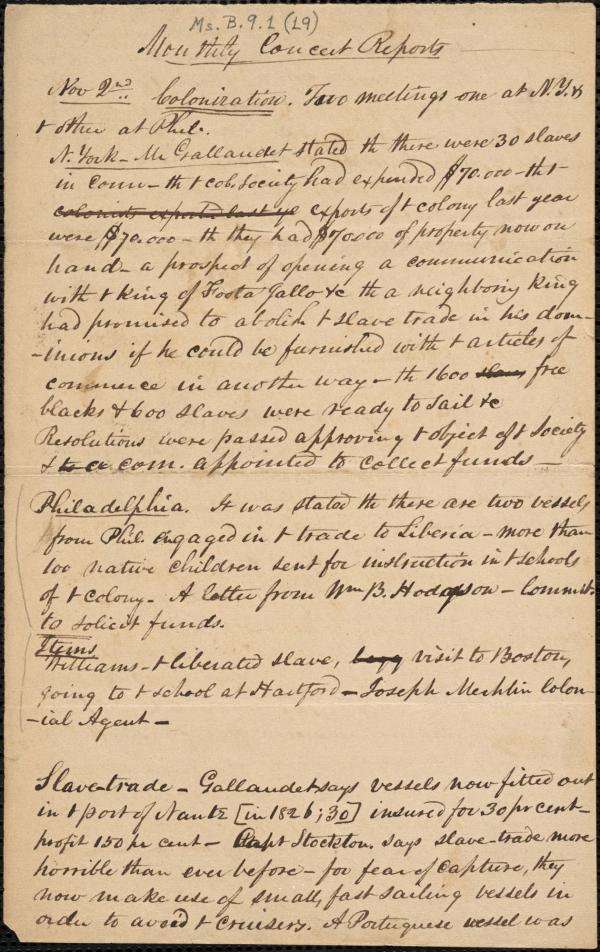 Ms. B. 9. 1 (19)
Monthly Concert Reports
Nov 2nd. Colonization. Two meetings one at N.Y. &
t other at Phil.
N. York - Mr Gallaudet stated th there were 30 slaves
in Conn - th t col. Society had expended $70.000 - th t
colonists exported last ye exports of t colony last year
were $70.000 - th they had $70000 of property now on
hand - a prospect of opening a communication
with t King of Foota Jallo &c th a neighboring King
had promised to abolish t slave trade in his dom-
-inions if he could be furnished with t articles of
commerce in another way - th 1600 slaves free
blacks & 600 slaves were ready to sail &c
Resolutions were passed approving t object of t Society
& to a com. appointed to collect funds -
Philadelphia. It was stated th there are two vessels
from Phil. engaged in t trade to Liberia - more than
100 native children sent for instruction in t schools
of t colony - A letter from Wm B. Hodgson - Committ
to solicit funds.
Items
Williams - t liberated slave, visit to Boston,
going to t school at Hartford - Joseph Mechlin Colon-
-ial Agent -
Slave-trade - Gallaudet says vessels now fitted out
in t port of Nantz [in 1826; 30] insured for 30 pr cent -
profit 150 pr cent - Capt Stockton says slave-trade more
horrible than ever before - for fear of capture, they
now make use of small, fast sailing vessels in
order to avoid t cruisers. A Portuguese vessel was